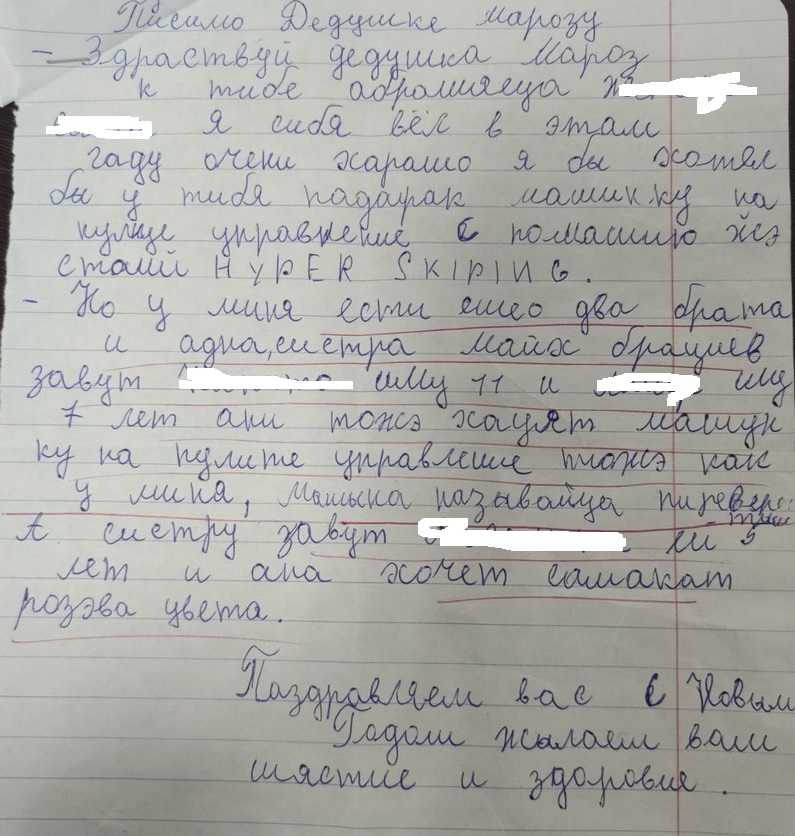 Писмо Дедушке марозу
– Здраствуй дедушка Мароз
к тибе абрашяеца
Я сибя вёл в этам
гаду очени харашо я бы хотял
бы у тибя падарак машинку на
пулце управнение с помашию жэ
сталй HYPER SKIPING.
– Но у миня ести ешео два брата
и адна, систра майх брациев
завут иму 11 и иму
7 лет ани тожэ хацят машун
ку на пулите управление тожэ как
у миня, Машына называйца пиревёро
тыш
А систру завут ей 5
лет и ана хочет самакат
розэва цвета.
Паздравляем вас с Новым
Годом жылаем вам
шястие и здоровие.